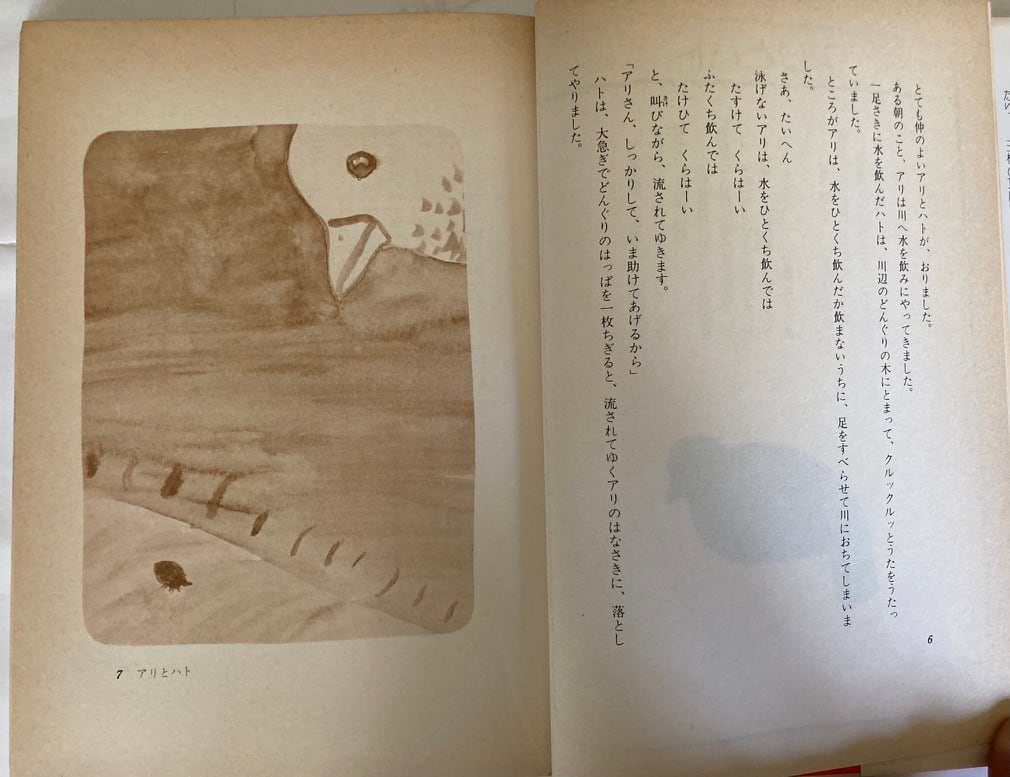 とても仲のよいアリとハトが、おりました。
ある朝のこと、アリは川へ水を飲みにやってきました。
一足さきに水を飲んだハトは、川辺のどんぐりの木にとまって、クルックルッとうたをうたっ
ていました。
ところがアリは、水をひとくち飲んだか飲まないうちに、足をすべらせて川におちてしまいま
した。
さあ、たいへん
泳げないアリは、水をひとくち飲んでは
たすけて くらはーい
ふたくち飲んでは
たけひて くらはーい
と、叫びながら、流されてゆきます。
「アリさん、しっかりして、いま助けてあげるから」
ハトは、大急ぎでどんぐりのはっぱを一枚ちぎると、流されてゆくアリのはなさきに、落とし
てやりました。
6
7 アリとハト